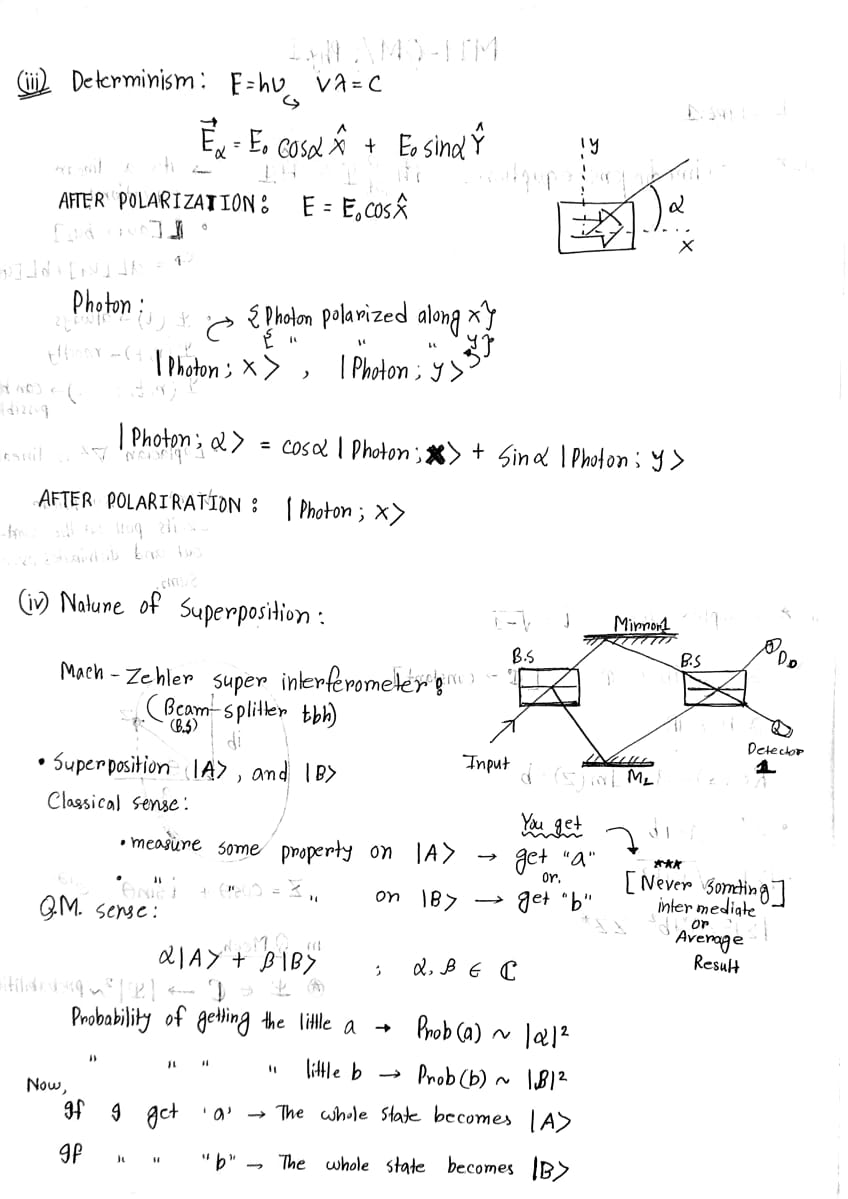 (iii) Determinism: E=hν, νλ=C
E⃗α = E₀ cosα X̂ + E₀ sinα Ŷ
y
α
x
AFTER POLARIZATION: E = E₀cosX̂
Photon:
{Photon polarized along x}
{ " " " y}
|Photon; x> , |Photon; y>
|Photon; α> = cosα |Photon; x> + sinα |Photon; y>
AFTER POLARIRATION: |Photon; x>
(iv) Nature of Superposition:
Mirror1
B.S
B.S
D₀
Mach-Zehler super interferometer:
(Beam-splitter tbh)
(B.S)
Detector
1
Input
M₂
• Superposition |A>, and |B>
Classical sense:
You get
• measure some property on |A> → get "a"
or,
• " " " on |B> → get "b"
***
[Never Somting]
intermediate
or
Average
Result
Q.M. sense:
α|A> + β|B> ; α, β ∈ ℂ
Probability of getting the little a → Prob(a) ~ |α|²
" " " " little b → Prob(b) ~ |β|²
Now,
If I get 'a' → The whole state becomes |A>
If " " "b" → The whole state becomes |B>